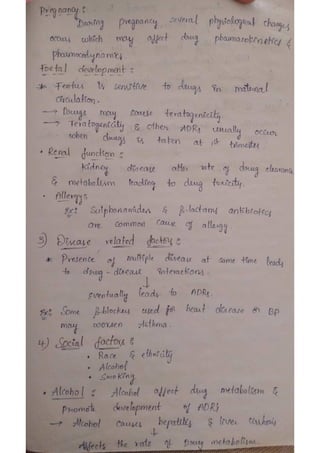 Pregnancy :
During pregnancy several physiological changes
occurs which may affect drug pharmacokinetics &
pharmacodynamics
Foetal development :
* Feotus is sensitive to drugs in maternal
circulation.
→ Drugs may cause teratogenicity.
→ Teratogenicity & other ADRs usually occur
when drugs is taken at 1st trimester
• Renal function :
Kidney disease alter rate of drug clearance
& metabolism leading to drug toxicity.
• Allergy :
Ex: Sulphonamides & β-lactams antibiotics
are common cause of allergy
3) Disease related factors :
* Presence of multiple disease at same time leads
to drug - disease interactions.
↓
eventually leads to ADRs.
Ex: Some β-blockers used for heart disease or BP
may worsen Asthma.
4) Social factors :
• Race & ethnicity
• Alcohol
• Smoking
• Alcohol : Alcohol affect drug metabolism &
promote development of ADRs
→ Alcohol causes hepatitis & liver cirrhosis
↓
Affects the rate of Drug metabolism.